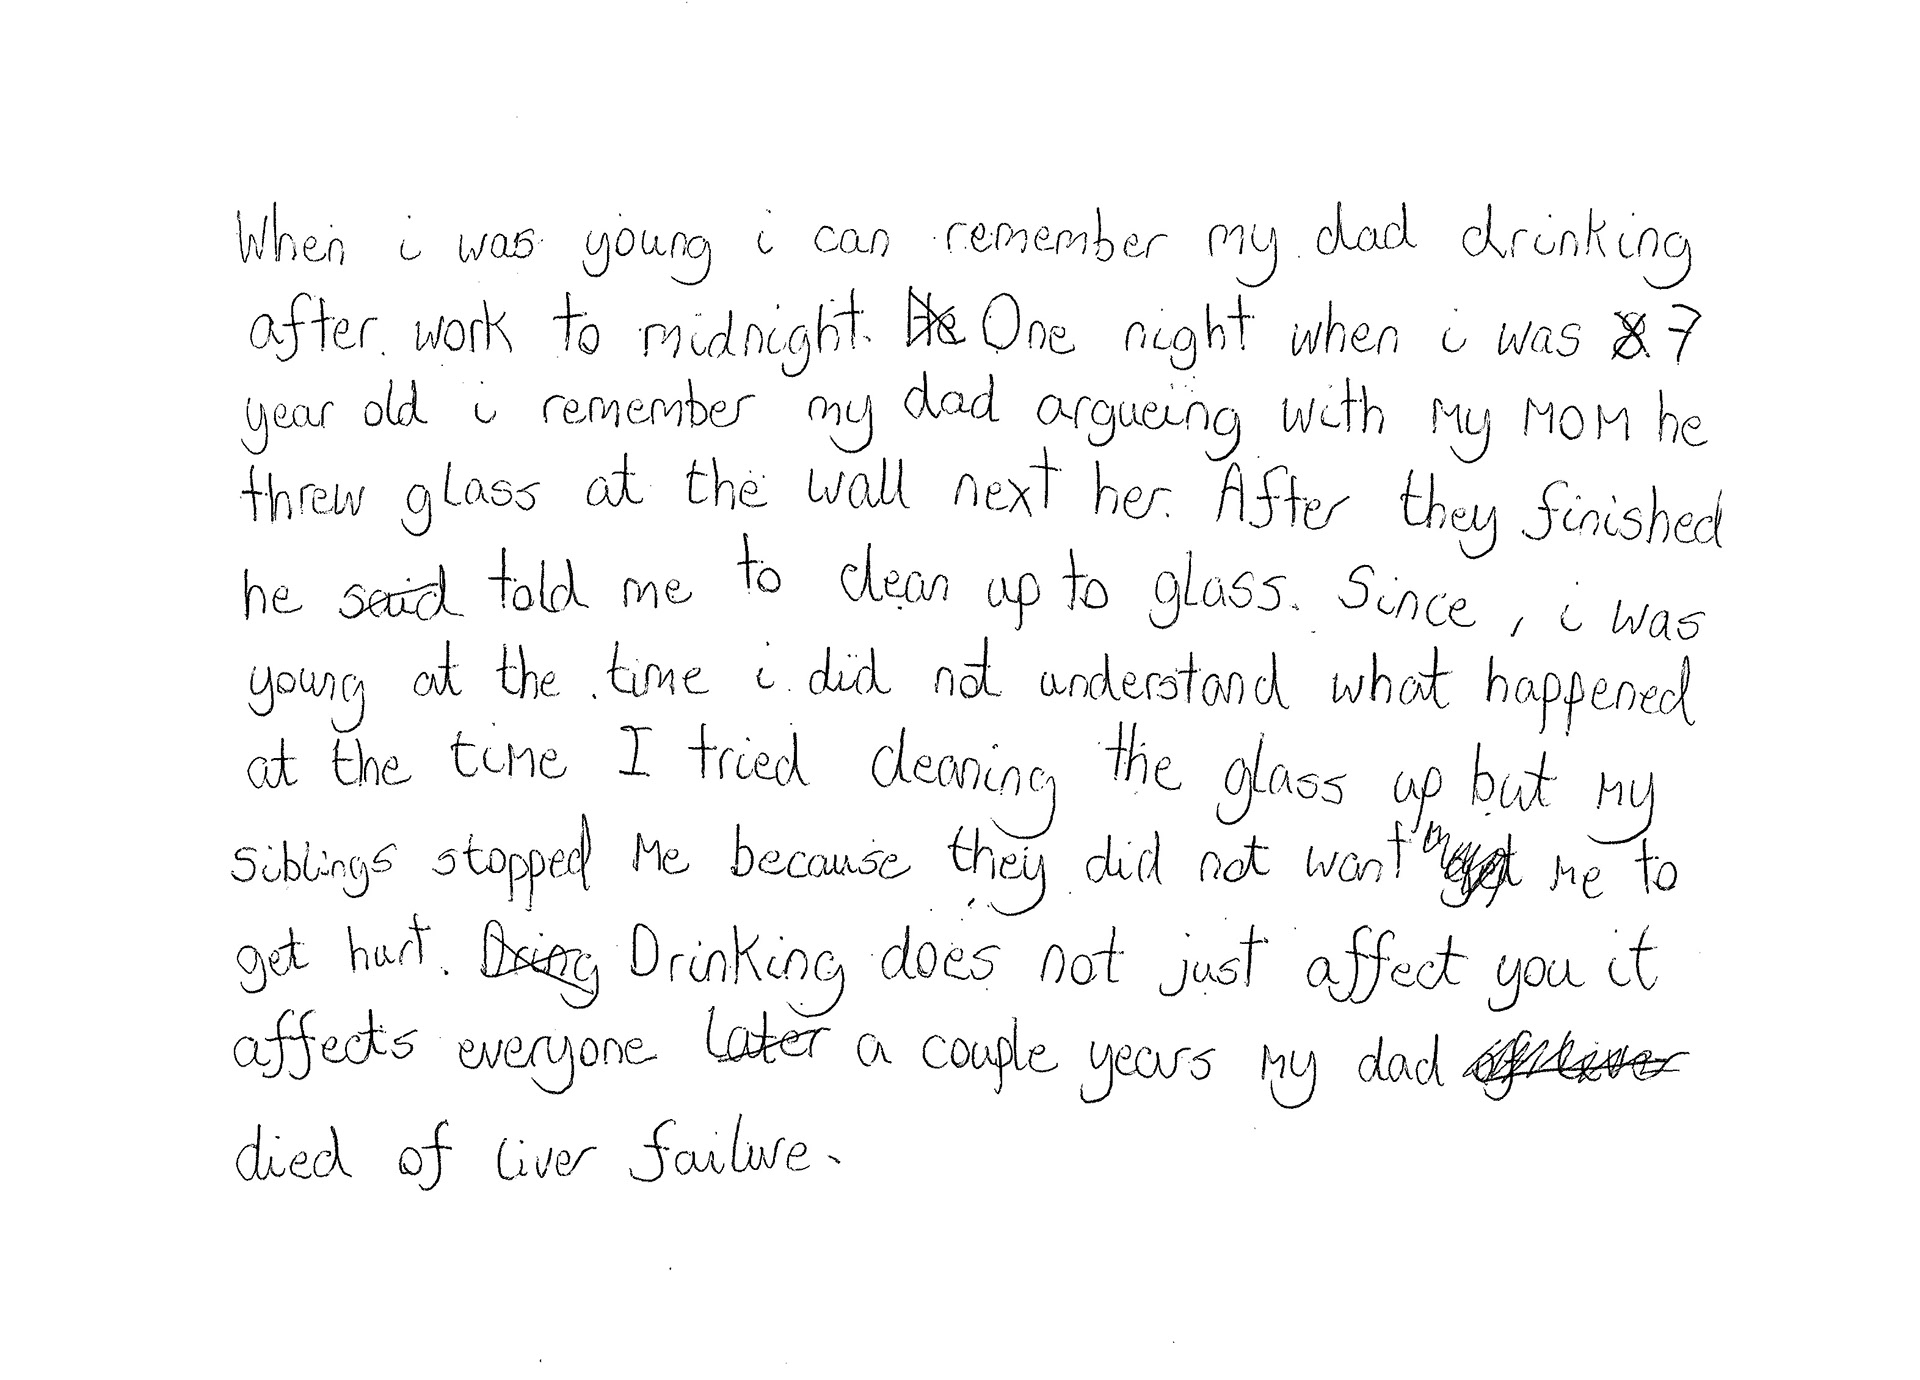 When i was young i can remember my dad drinking
after work to midnight. He One night when i was 8 7
year old i remember my dad argueing with my MOM he
threw glass at the wall next her. After they finished
he said told me to clean up to glass. Since, i was
young at the time i did not understand what happened
at the time I tried cleaning the glass up but my
siblings stopped me because they did not want me to
get hurt. Dring Drinking does not just affect you it
affects everyone later a couple years my dad
died of liver failure.